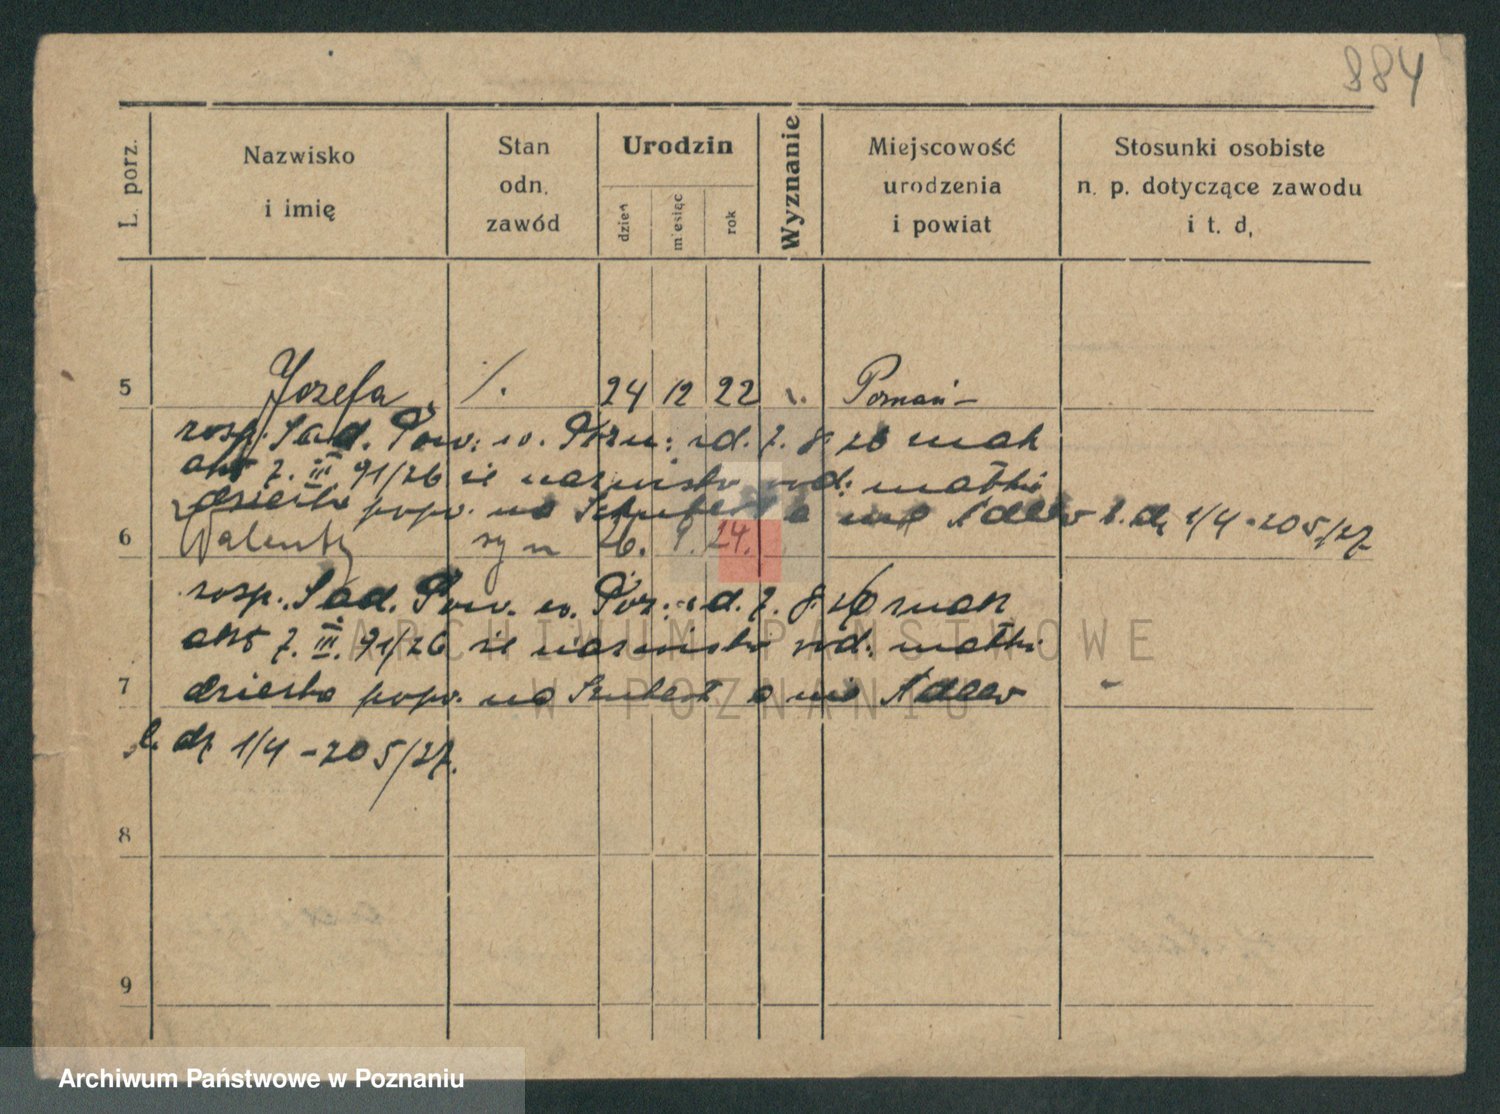 884
L. porz.
Nazwisko
i imię
Stan
odn.
zawód
Urodzin
dzień
miesiąc
rok
Wyznanie
Miejscowość
urodzenia
i powiat
Stosunki osobiste
n. p. dotyczące zawodu
i t. d,
5 Józefa ./. 24 12 22 ". Poznań -
rosp. Sąd. Pow. w. Pozn: z d. 7. 8 26 mak
akt 7. III 91/26 że nazwisko rod: matki
dziecka popr. na Schubert a nie Adler l. dz 1/4 - 205/27.
6 Walenty syn 26. 9. 24.
rosp. Sąd. Pow. w. Poz: z d. 7. 8 26 mak
akt 7. III. 91/26 że nazwisko rod: matki
7 dziecka popr. na Szubert a nie Adler
l. dz 1/4 - 205/27.
8
9
ARCHIWUM PAŃSTWOWE
W POZNANIU
Archiwum Państwowe w Poznaniu